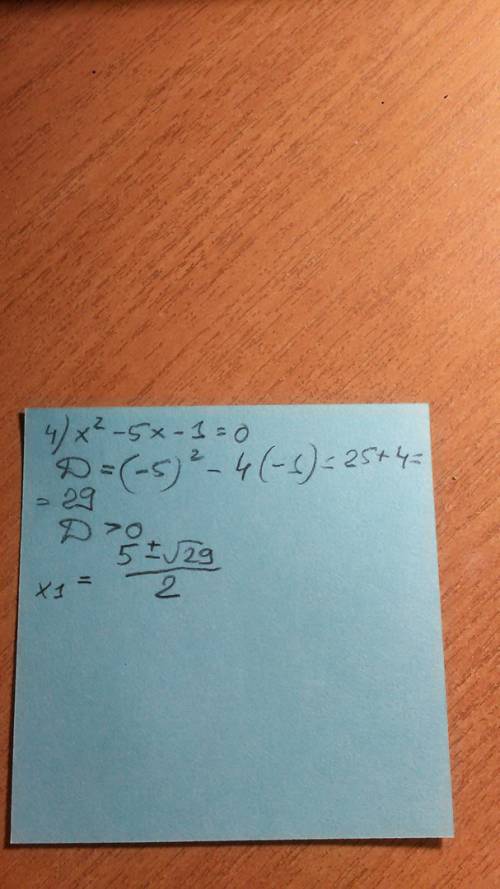 4) x² - 5x - 1 = 0
D = (-5)² - 4(-1) = 25 + 4 =
= 29
D > 0
x1 = (5 ± √29)/2